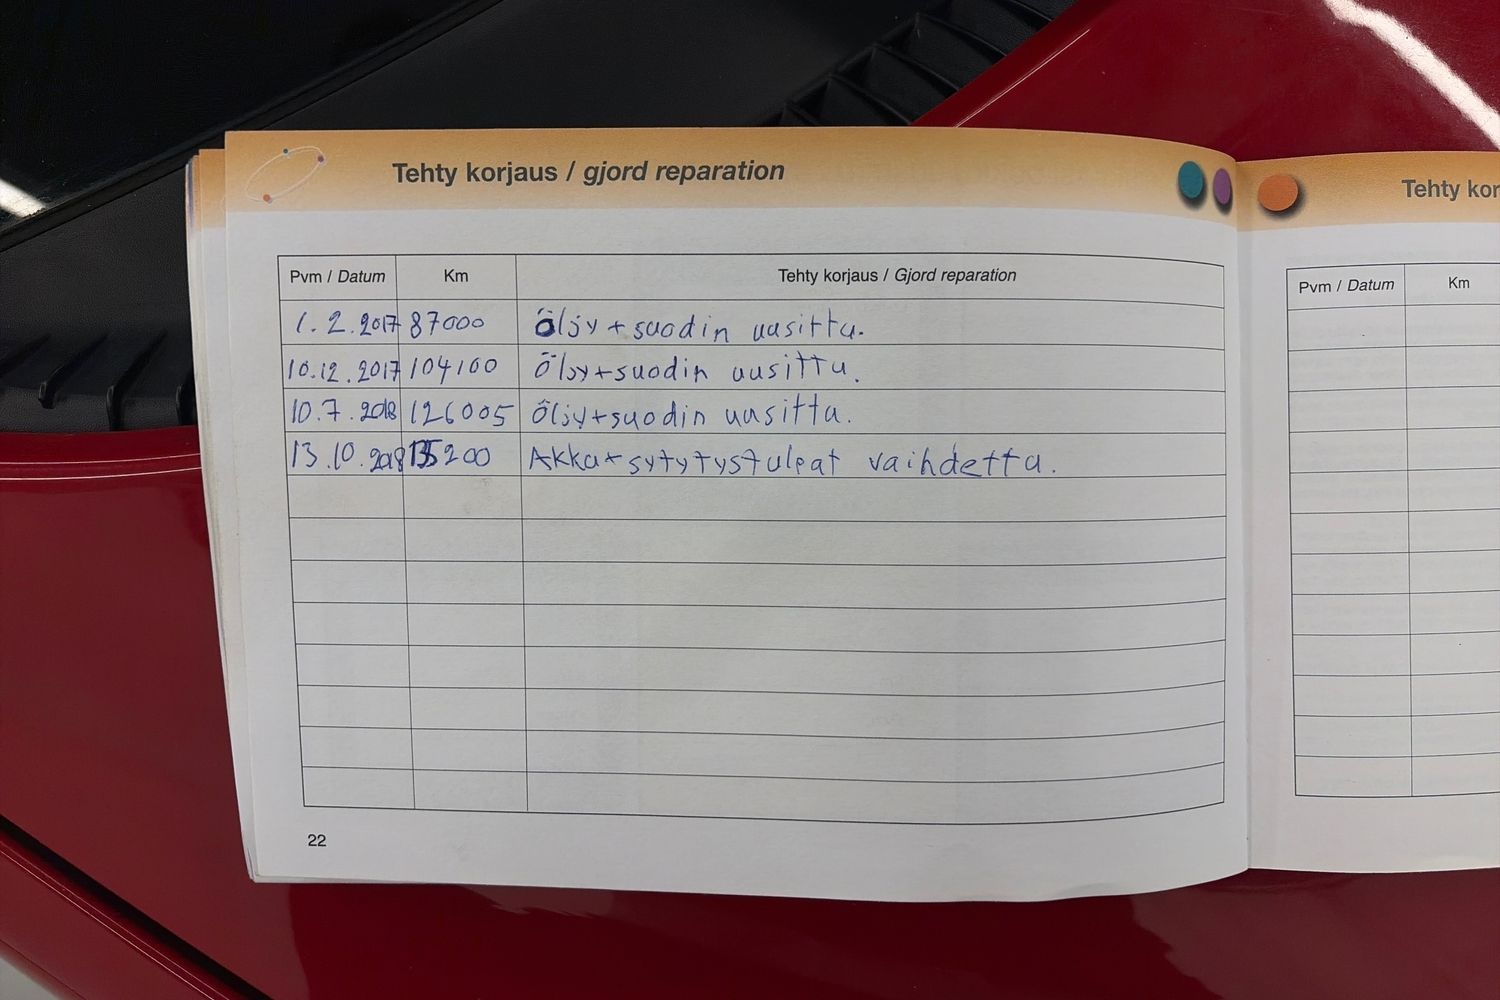 Tehty korjaus / gjord reparation
Pvm / Datum Km Tehty korjaus / Gjord reparation
1.2.2017 87000 Öljy+suodin uusittu.
10.12.2017 104100 Öljy+suodin uusittu.
10.7.2018 126005 Öljy+suodin uusitta.
13.10.2018 135200 Akku+sytytystulpat vaihdettu.
22
Tehty kor
Pvm / Datum Km